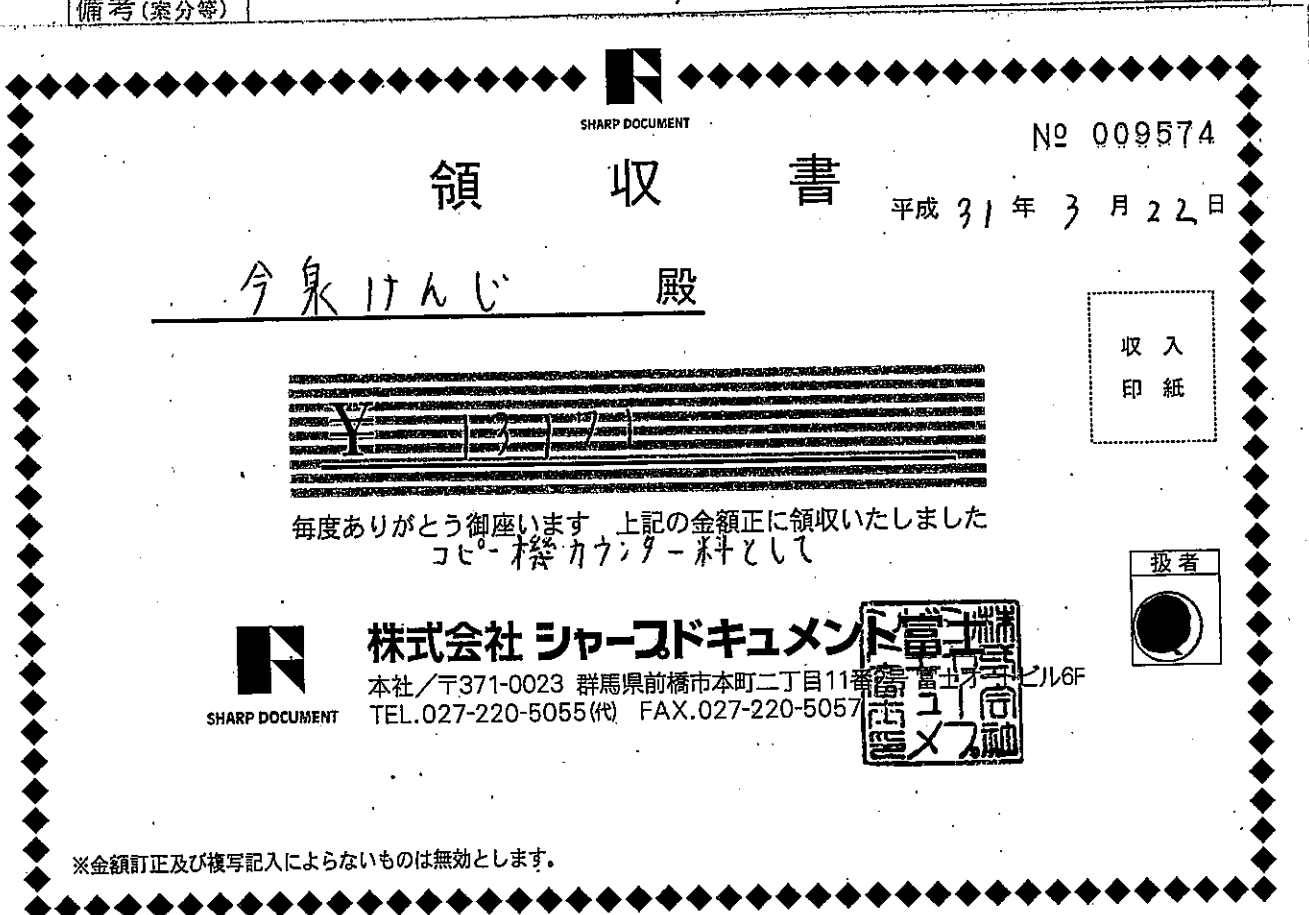 備考(案分等)
SHARP DOCUMENT
№ 009574
領収書
平成 31 年 3 月 22 日
今泉けんじ 殿
収入
印紙
毎度ありがとう御座います 上記の金額正に領収いたしました
コピー機カウンター料として
扱者
株式会社 シャープドキュメント
本社/〒371-0023 群馬県前橋市本町二丁目11番 ビル6F
SHARP DOCUMENT
TEL.027-220-5055(代) FAX.027-220-5057
※金額訂正及び複写記入によらないものは無効とします。